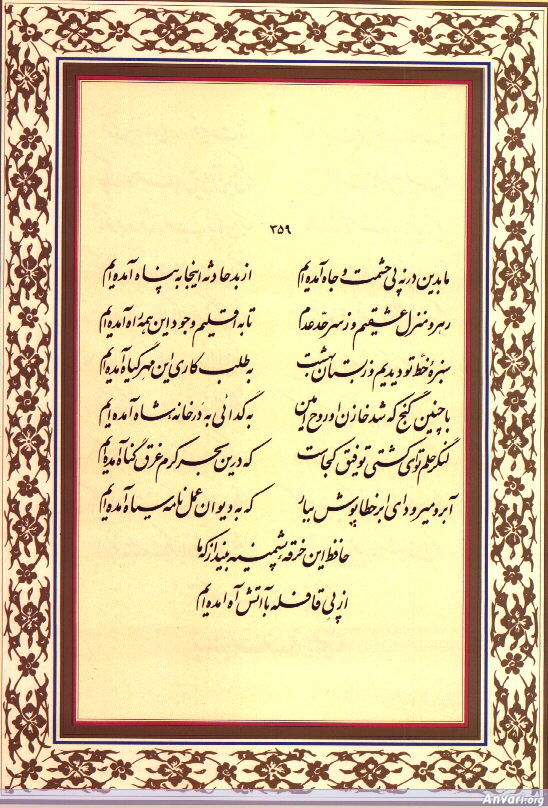 ۳۵۹
ما بدین در نه پی حشمت و جاه آمده‌ایم از بد حادثه اینجا به پناه آمده‌ایم
رهرو منزل عشقیم و ز سر حد عدم تا به اقلیم وجود این همه راه آمده‌ایم
سبزهٔ خط تو دیدیم و ز بستان بهشت به طلب کاری این مهر گیاه آمده‌ایم
با چنین گنج که شد خازن او روح امین به گدائی به در خانهٔ شاه آمده‌ایم
لنگر حلم تو ای کشتی توفیق کجاست که درین بحر کرم غرق گناه آمده‌ایم
آبرو میرود ای ابر خطا پوش ببار که به دیوان عمل نامه سیاه آمده‌ایم
حافظ این خرقهٔ پشمینه بینداز که ما
از پی قافله با آتش آه آمده‌ایم
Anvari.org